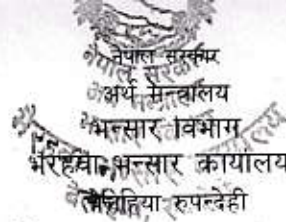 नेपाल सरकार
अर्थ मन्त्रालय
भन्सार विभाग
भैरहवा भन्सार कार्यालय
रुपन्देही